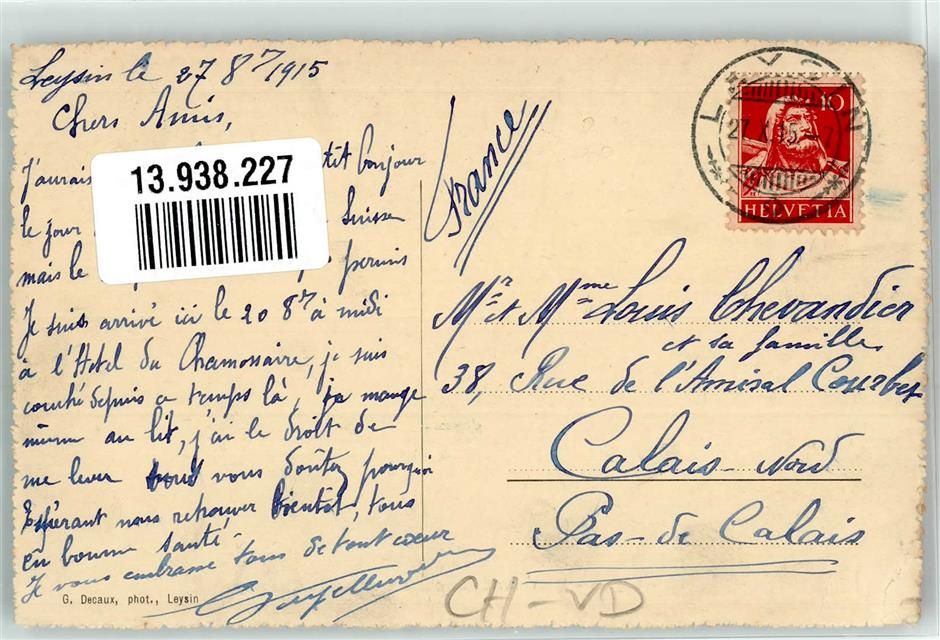 Leysin le 27 8bre 1915
Chers Amis,
J'aurais tit bonjour
le jour Suisse
mais le permis
Je suis arrivé ici le 20 8bre à midi
à l'Hôtel du Chamossaire, je suis
couché depuis ce temps là, je mange
même au lit, j'ai le droit de
me lever vous doutez pourquoi
Espérant nous retrouver bientôt, tous
en bonne santé.
Je vous embrasse tous de tout cœur
G. Decaux, phot., Leysin
13.938.227
France
10
HELVETIA
Mr et Mme Louis Chevandier
et sa famille
38, Rue de l'Amiral Courbet
Calais-Nord
Pas-de-Calais
CH-VD